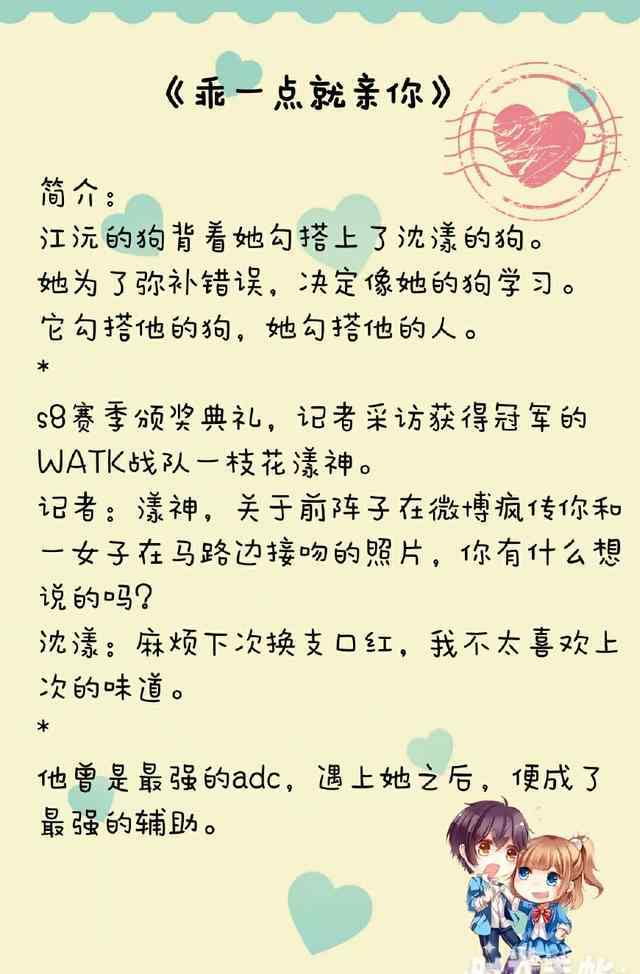 《乖一点就亲你》
简介：
江沅的狗背着她勾搭上了沈漾的狗。
她为了弥补错误，决定像她的狗学习。
它勾搭他的狗，她勾搭他的人。
*
s8赛季颁奖典礼，记者采访获得冠军的
WATK战队一枝花漾神。
记者：漾神，关于前阵子在微博疯传你和
一女子在马路边接吻的照片，你有什么想
说的吗？
沈漾：麻烦下次换支口红，我不太喜欢上
次的味道。
*
他曾是最强的adc，遇上她之后，便成了
最强的辅助。